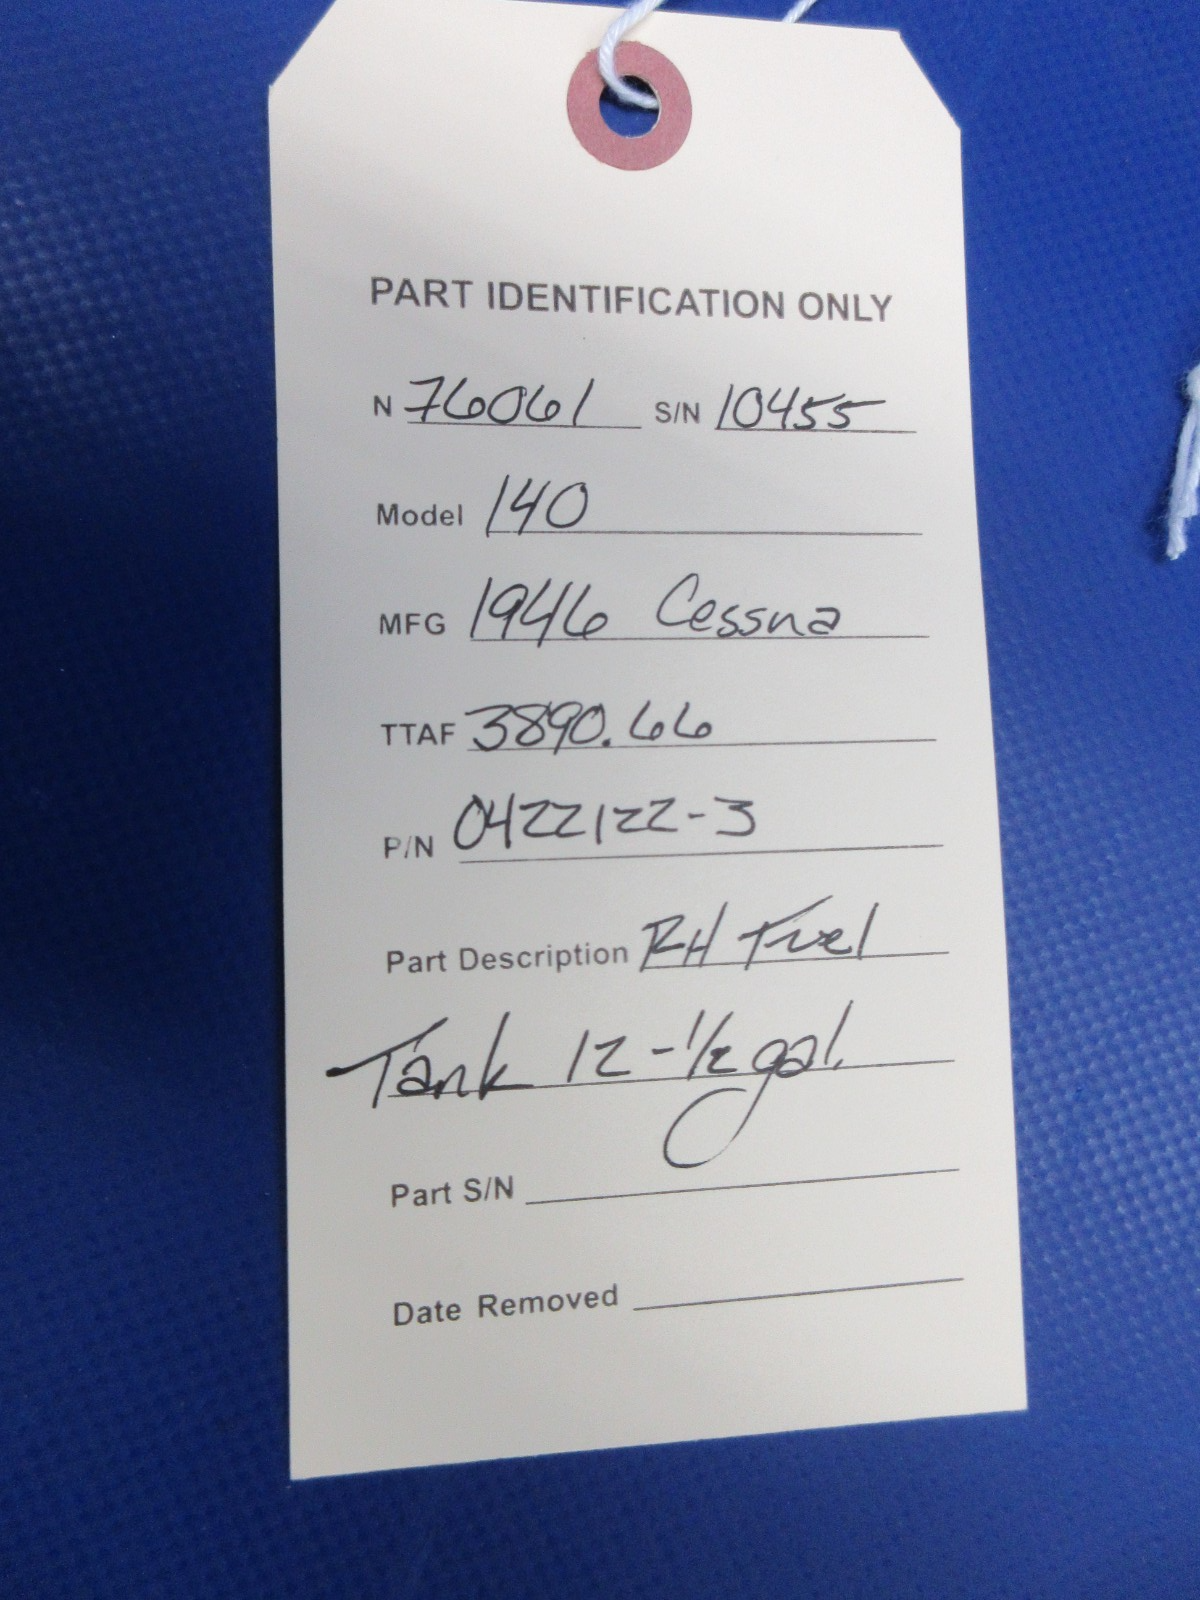 PART IDENTIFICATION ONLY
N 76061 S/N 10455
Model 140
MFG 1946 Cessna
TTAF 3890.66
P/N 0422122-3
Part Description RH Fuel
Tank 12-1/2 gal.
Part S/N
Date Removed